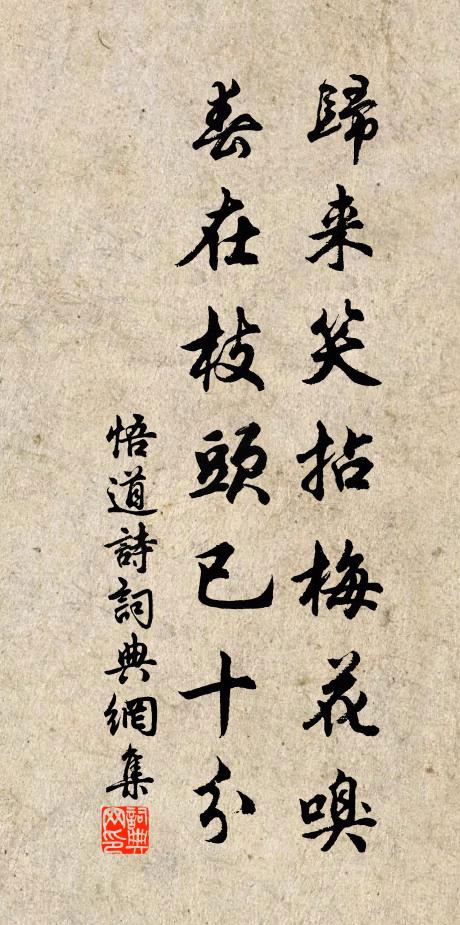 歸来笑拈梅花嗅
春在枝頭已十分
悟道詩詞典網集
詞典网印